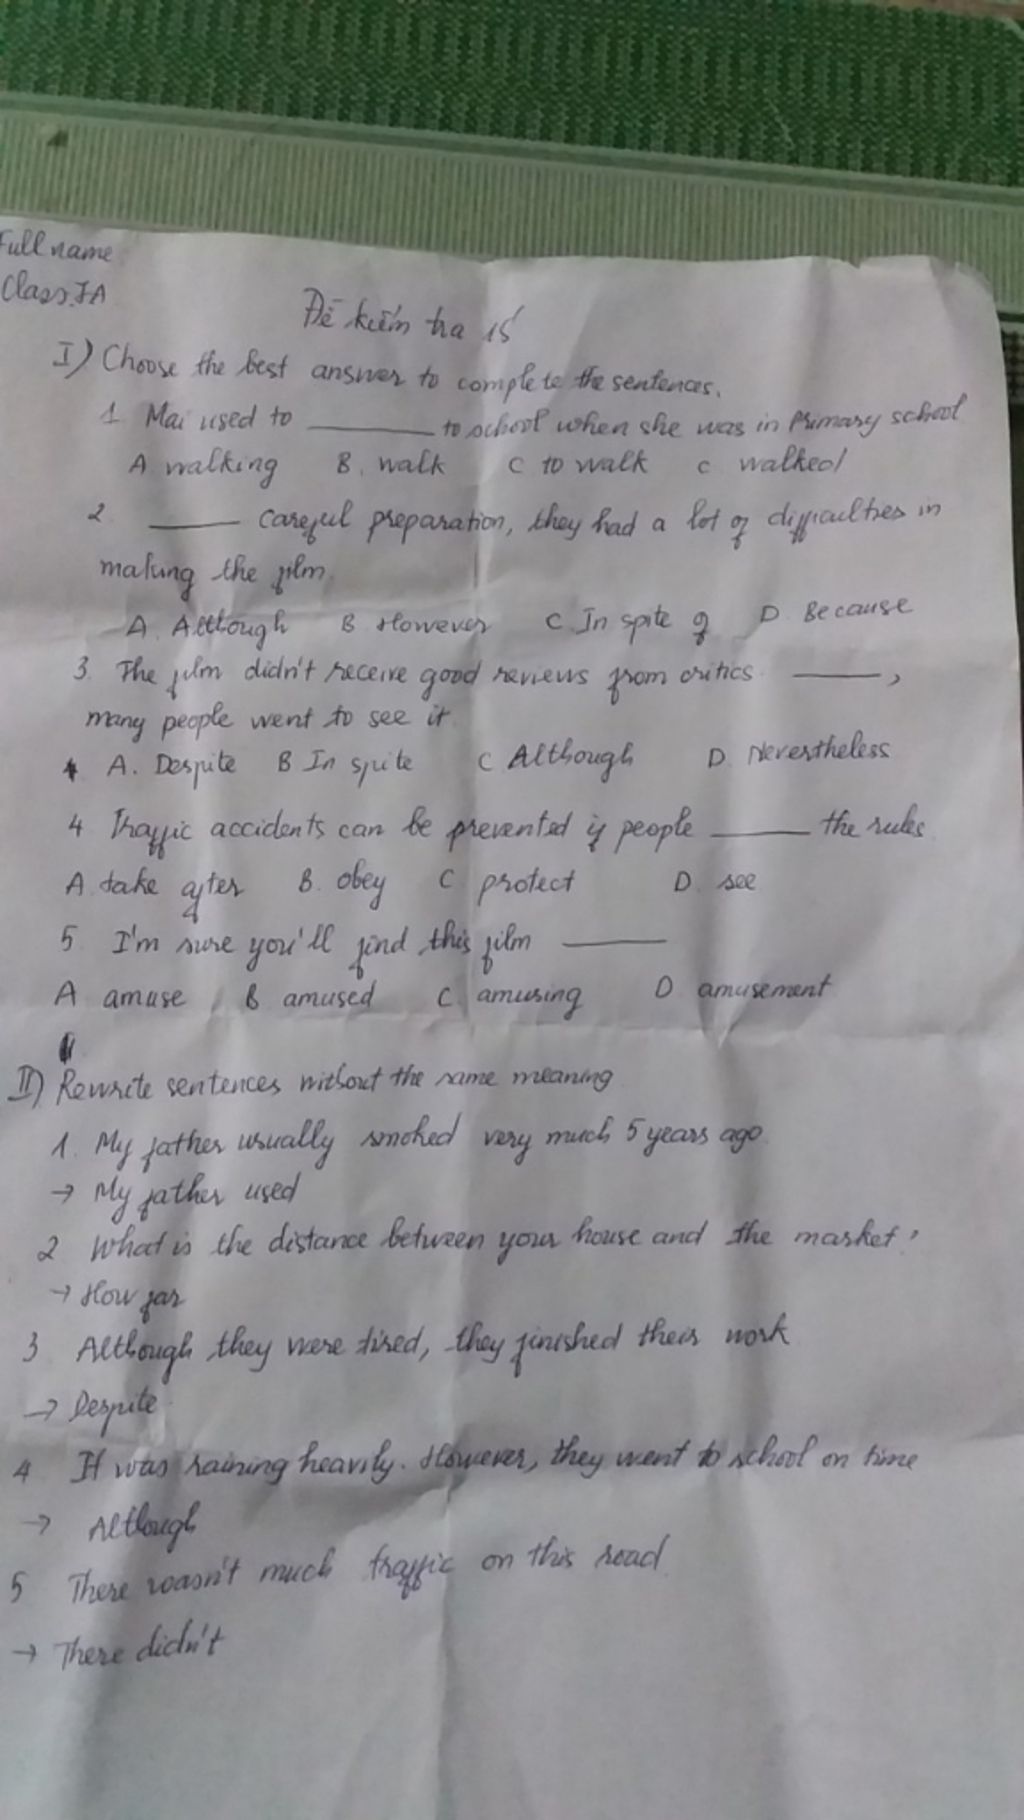 Full name
Class 7A
Đề kiểm tra 15'
I) Choose the best answer to complete the sentences.
1. Mai used to ______ to school when she was in Primary school
A. walking B. walk C to walk c. walked
2. ______ careful preparation, they had a lot of difficulties in
making the film.
A. Although B. However C. In spite of D. Because
3. The film didn't receive good reviews from critics. ______,
many people went to see it.
A. Despite B In spite C Although D. Nevertheless
4 Traffic accidents can be prevented if people ______ the rules.
A. take after B. obey C protect D. see
5 I'm sure you'll find this film ______
A amuse B. amused C. amusing D amusement
II) Rewrite sentences without the same meaning
1. My father usually smoked very much 5 years ago.
→ My father used
2 What is the distance between your house and the market?
→ How far
3 Although they were tired, they finished their work
→ Despite
4 It was raining heavily. However, they went to school on time
→ Although
5 There wasn't much traffic on this road.
→ There didn't